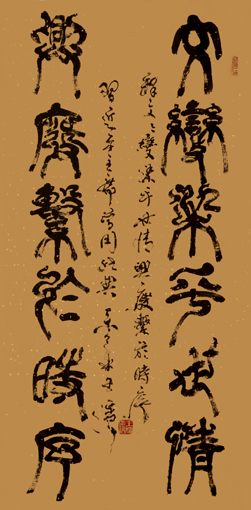 文變染乎世情
興廢繫於時序
釋文文變染乎世情興廢繫於時序
習近平主席